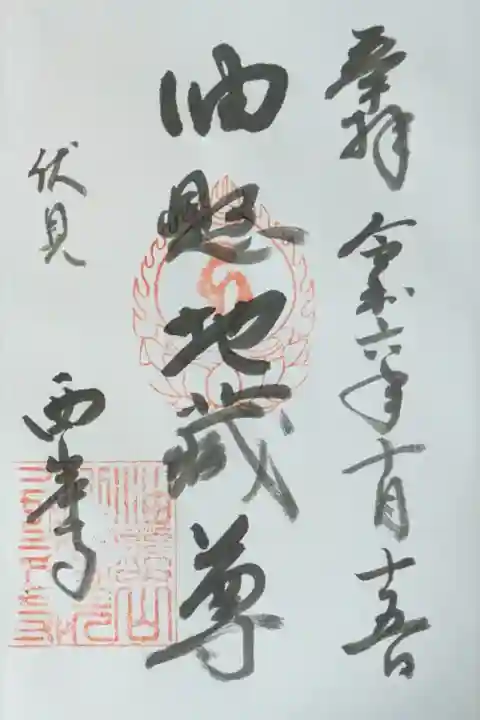 奉拝 令和六年十月十五日
油懸地蔵尊
伏見
西岸寺